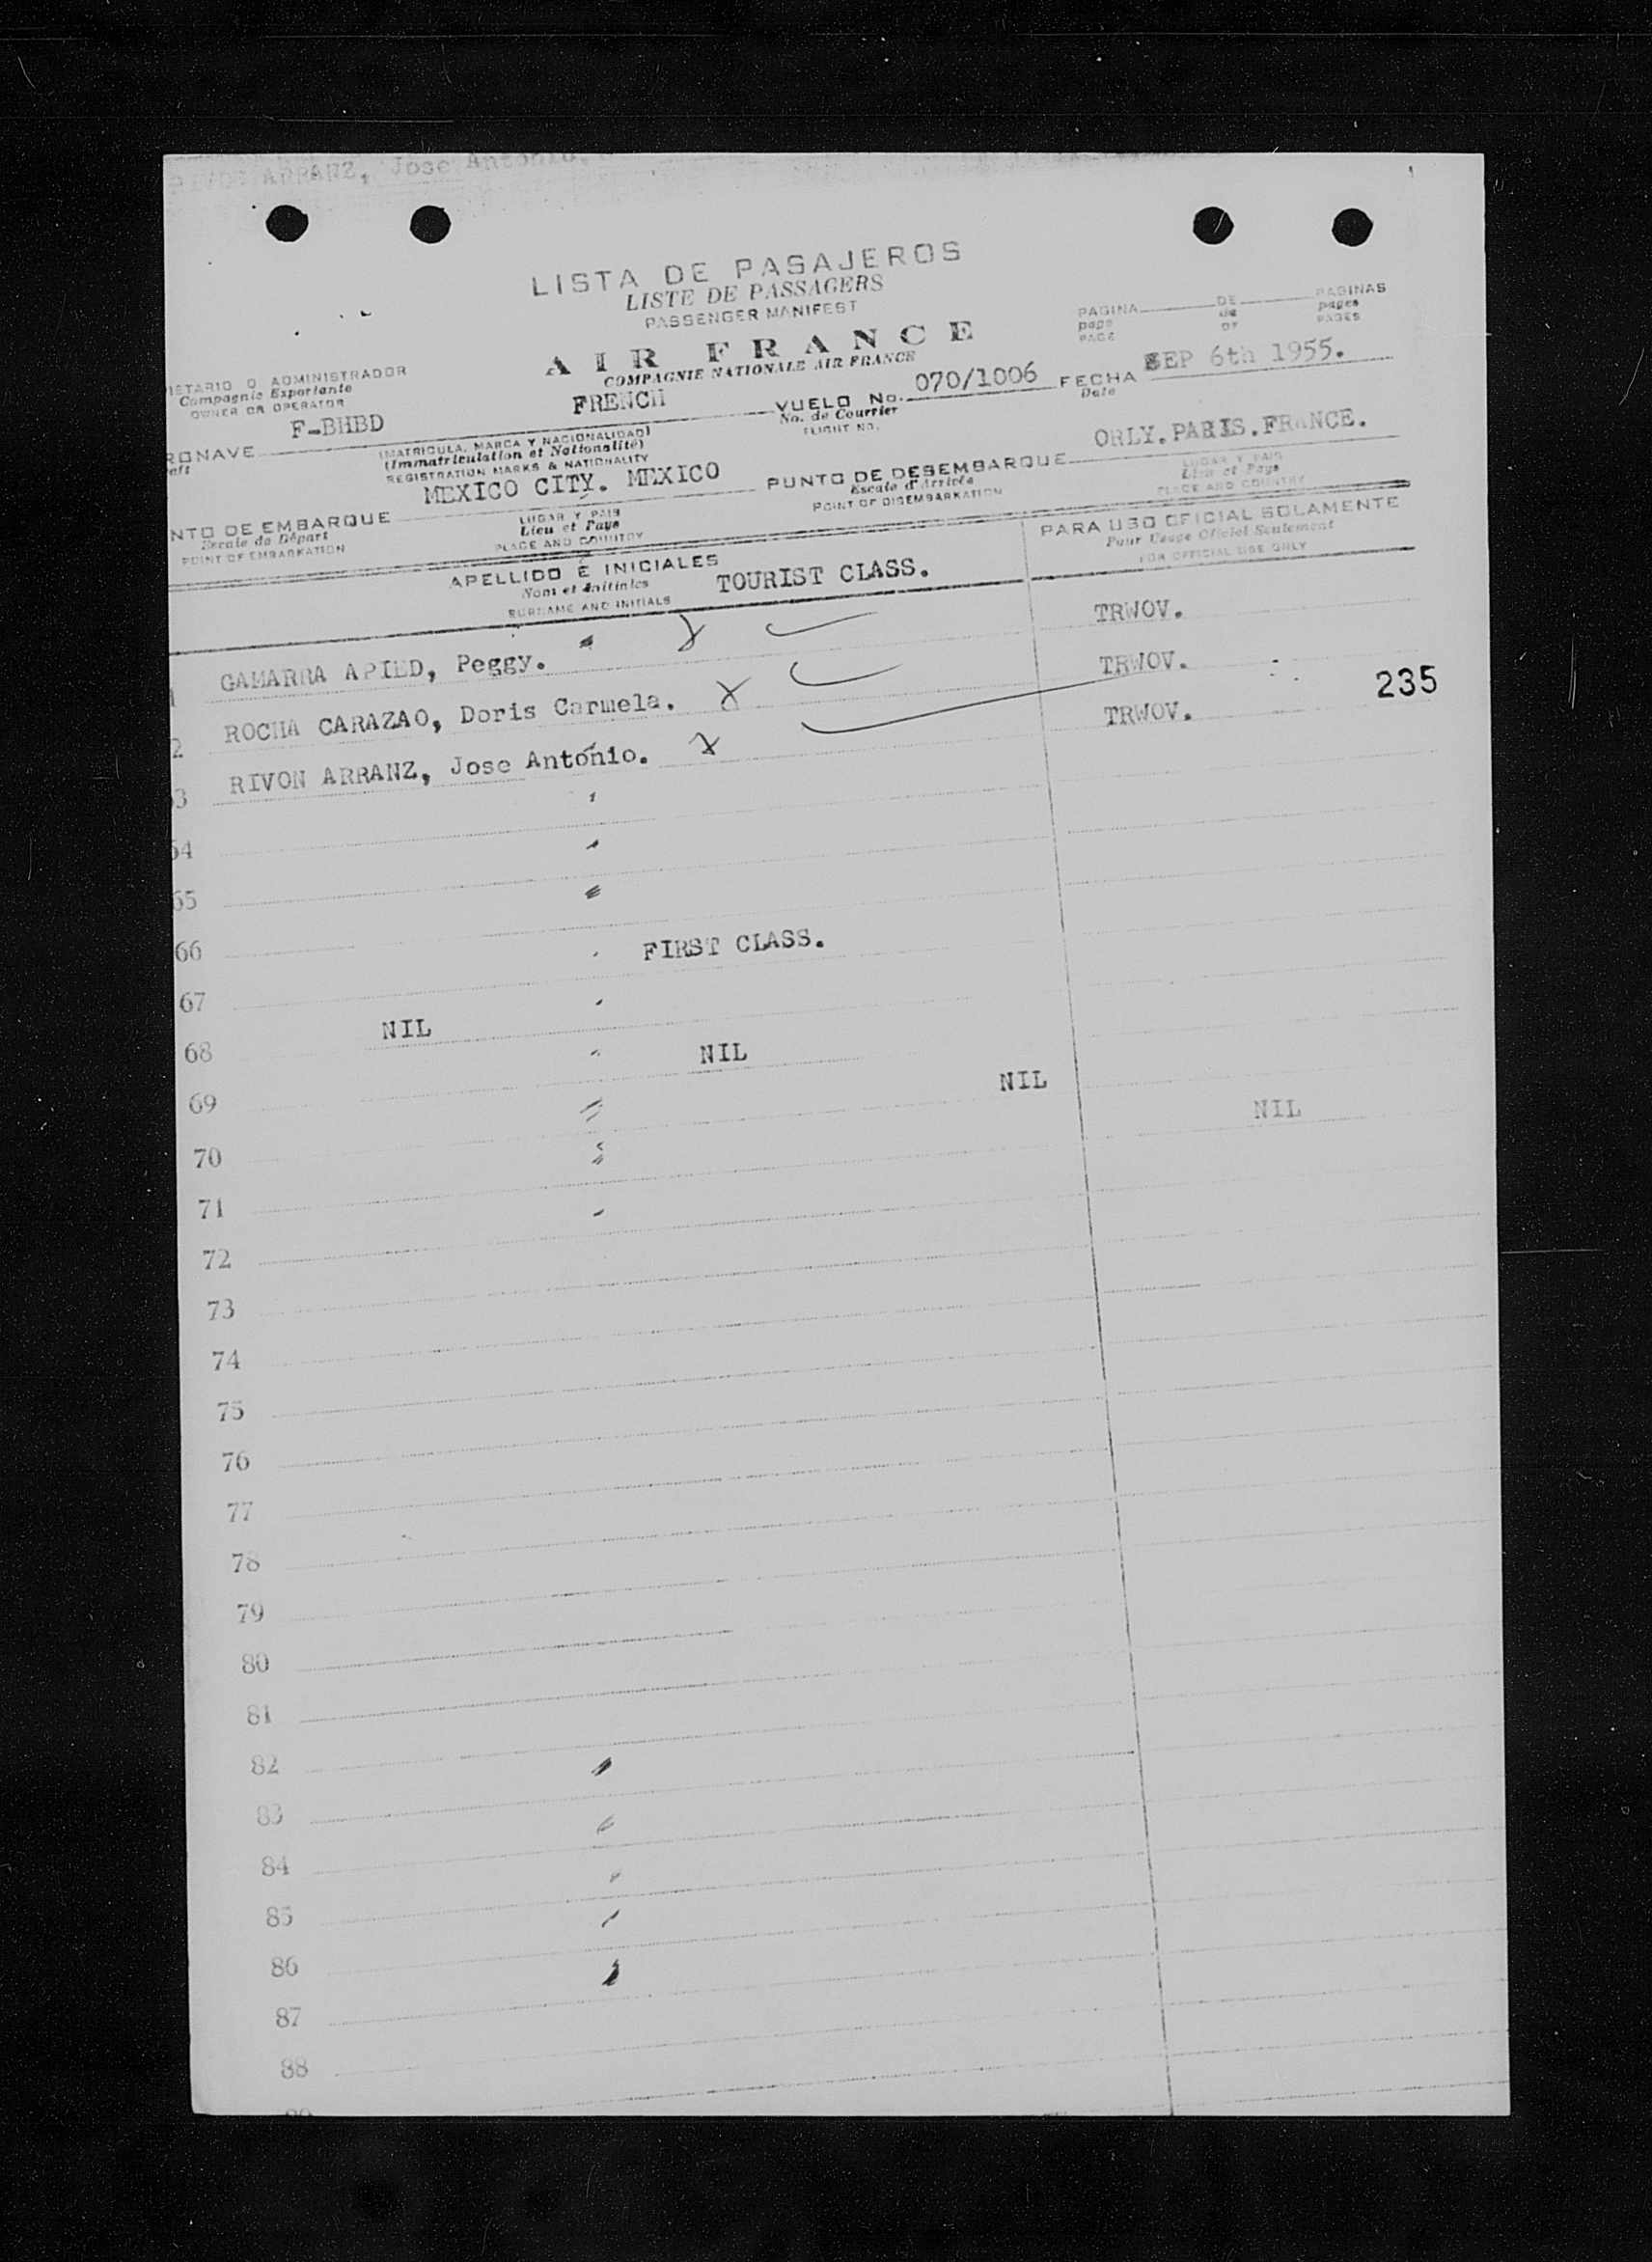 ARRANZ, Jose Antonio.
LISTA DE PASAJEROS
LISTE DE PASSAGERS
PASSENGER MANIFEST
PAGINA DE PAGINAS
page de pages
PAGE OF PAGES
AIR FRANCE
COMPAGNIE NATIONALE AIR FRANCE
IETARIO O ADMINISTRADOR
Compagnie Exportante
OWNER OR OPERATOR
F-BHBD FRENCH VUELO No. 070/1006 FECHA SEP 6th 1955.
No. de Courrier Date
FLIGHT NO.
RONAVE (MATRICULA, MARCA Y NACIONALIDAD)
aft (Immatriculation et Nationalité)
REGISTRATION MARKS & NATIONALITY
NTO DE EMBARQUE MEXICO CITY. MEXICO PUNTO DE DESEMBARQUE ORLY.PARIS.FRANCE.
Escale de Départ LUGAR Y PAIS Escale d'Arrivée LUGAR Y PAIS
POINT OF EMBARKATION Lieu et Pays POINT OF DISEMBARKATION Lieu et Pays
PLACE AND COUNTRY PLACE AND COUNTRY
APELLIDO E INICIALES TOURIST CLASS. PARA USO OFICIAL SOLAMENTE
Nom et Initiales Pour Usage Officiel Seulement
SURNAME AND INITIALS FOR OFFICIAL USE ONLY
1 GAMARRA APIED, Peggy. TRWOV.
2 ROCHA CARAZAO, Doris Carmela. TRWOV.
235
3 RIVON ARRANZ, Jose Antonio. TRWOV.
64
65
66
FIRST CLASS.
67
68 NIL
69 NIL
NIL
70 NIL
71
72
73
74
75
76
77
78
79
80
81
82
83
84
85
86
87
88